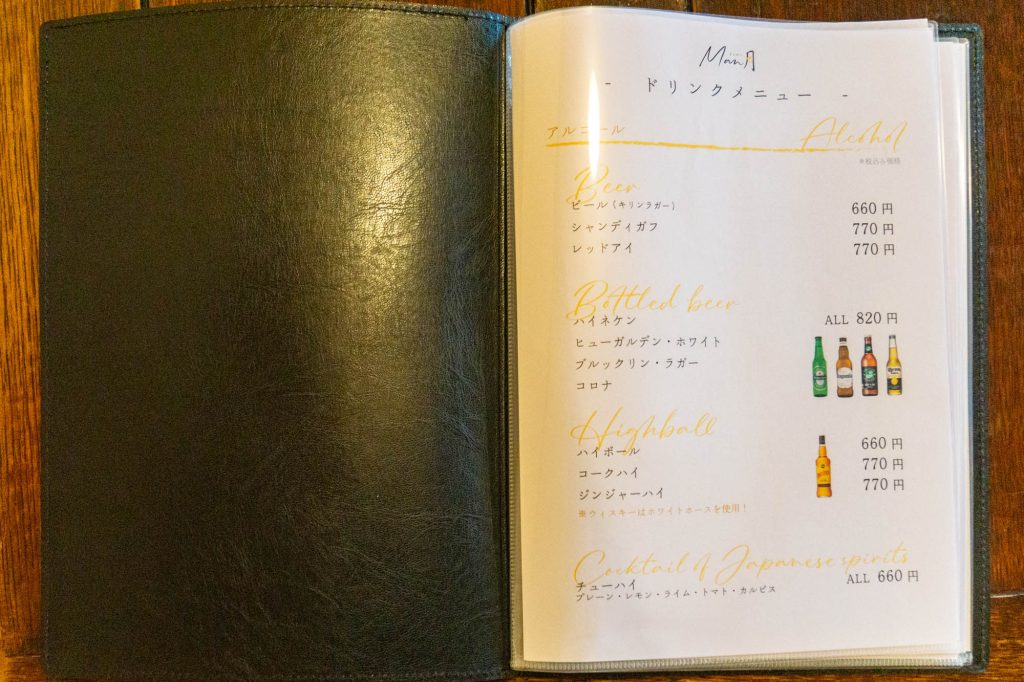 Man月
- ドリンクメニュー -
アルコール Alcohol
※税込み価格
Beer
ビール（キリンラガー） 660円
シャンディガフ 770円
レッドアイ 770円
Bottled beer
ハイネケン ALL 820円
ヒューガルデン・ホワイト
ブルックリン・ラガー
コロナ
Highball
ハイボール 660円
コークハイ 770円
ジンジャーハイ 770円
※ウィスキーはホワイトホースを使用！
Cocktail of Japanese spirits
チューハイ ALL 660円
プレーン・レモン・ライム・トマト・カルピス